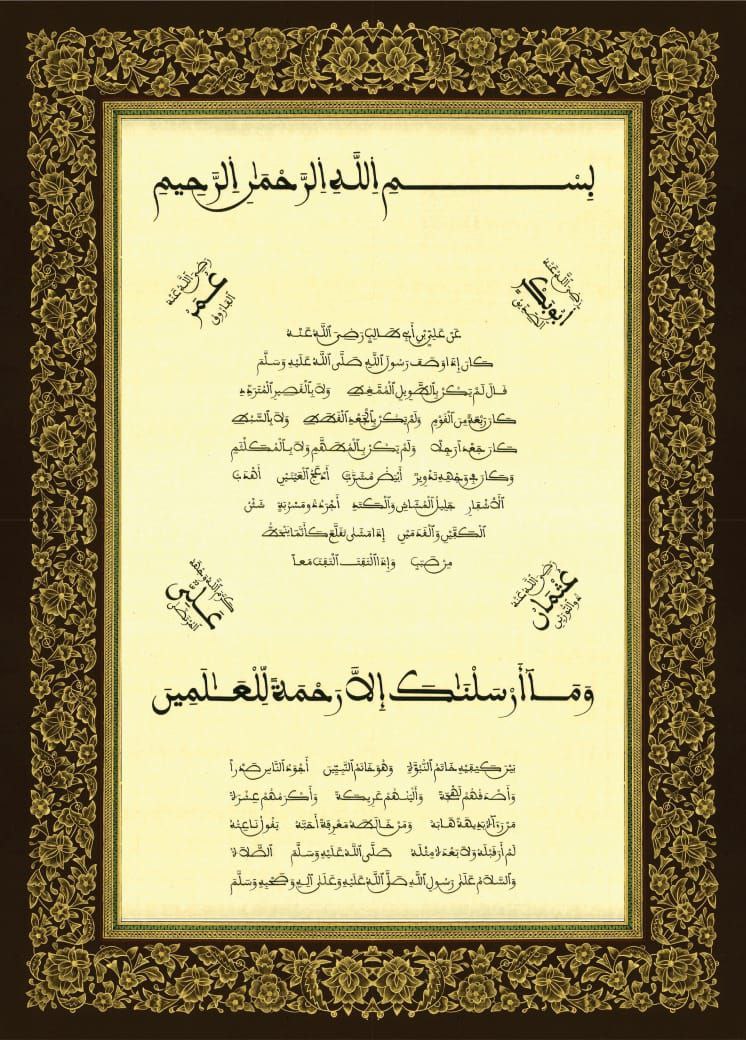 بِسْمِ اللَّهِ الرَّحْمَٰنِ الرَّحِيمِ
أبو بكر الصديق رَضِيَ اللَّهُ عَنْهُ
عُمَر الفاروق رَضِيَ اللَّهُ عَنْهُ
عَنْ عَلِيِّ بْنِ أَبِي طَالِبٍ رَضِيَ اللَّهُ عَنْهُ
كَانَ إِذَا وَصَفَ رَسُولَ اللَّهِ صَلَّى اللَّهُ عَلَيْهِ وَسَلَّمَ
قَالَ لَمْ يَكُنْ بِالطَّوِيلِ الْمُمَّغِطِ وَلَا بِالْقَصِيرِ الْمُتَرَدِّدِ
كَانَ رَبْعَةً مِنَ الْقَوْمِ وَلَمْ يَكُنْ بِالْجَعْدِ الْقَطَطِ وَلَا بِالسَّبْطِ
كَانَ جَعْدًا رَجِلًا وَلَمْ يَكُنْ بِالْمُطَهَّمِ وَلَا بِالْمُكَلْثَمِ
وَكَانَ فِي وَجْهِهِ تَدْوِيرٌ أَبْيَضُ مُشْرَبٌ أَدْعَجُ الْعَيْنَيْنِ أَهْدَبُ
الْأَشْفَارِ جَلِيلُ الْمُشَاشِ وَالْكَتَدِ أَجْرَدُ ذُو مَسْرُبَةٍ شَثْنُ
الْكَفَّيْنِ وَالْقَدَمَيْنِ إِذَا مَشَى تَقَلَّعَ كَأَنَّمَا يَنْحَطُّ
مِنْ صَبَبٍ وَإِذَا الْتَفَتَ الْتَفَتَ مَعًا
عُثْمَان ذو النورين رَضِيَ اللَّهُ عَنْهُ
عَلِيّ المرتضى كَرَّمَ اللَّهُ وَجْهَهُ
وَمَا أَرْسَلْنَاكَ إِلَّا رَحْمَةً لِلْعَالَمِينَ
بَيْنَ كَتِفَيْهِ خَاتَمُ النُّبُوَّةِ وَهُوَ خَاتَمُ النَّبِيِّينَ أَجْوَدُ النَّاسِ صَدْرًا
وَأَصْدَقُهُمْ لَهْجَةً وَأَلْيَنُهُمْ عَرِيكَةً وَأَكْرَمُهُمْ عِشْرَةً
مَنْ رَآهُ بَدِيهَةً هَابَهُ وَمَنْ خَالَطَهُ مَعْرِفَةً أَحَبَّهُ يَقُولُ نَاعِتُهُ
لَمْ أَرَ قَبْلَهُ وَلَا بَعْدَهُ مِثْلَهُ صَلَّى اللَّهُ عَلَيْهِ وَسَلَّمَ الصَّلَاةُ
وَالسَّلَامُ عَلَى رَسُولِ اللَّهِ صَلَّى اللَّهُ عَلَيْهِ وَعَلَى آلِهِ وَصَحْبِهِ وَسَلَّمَ